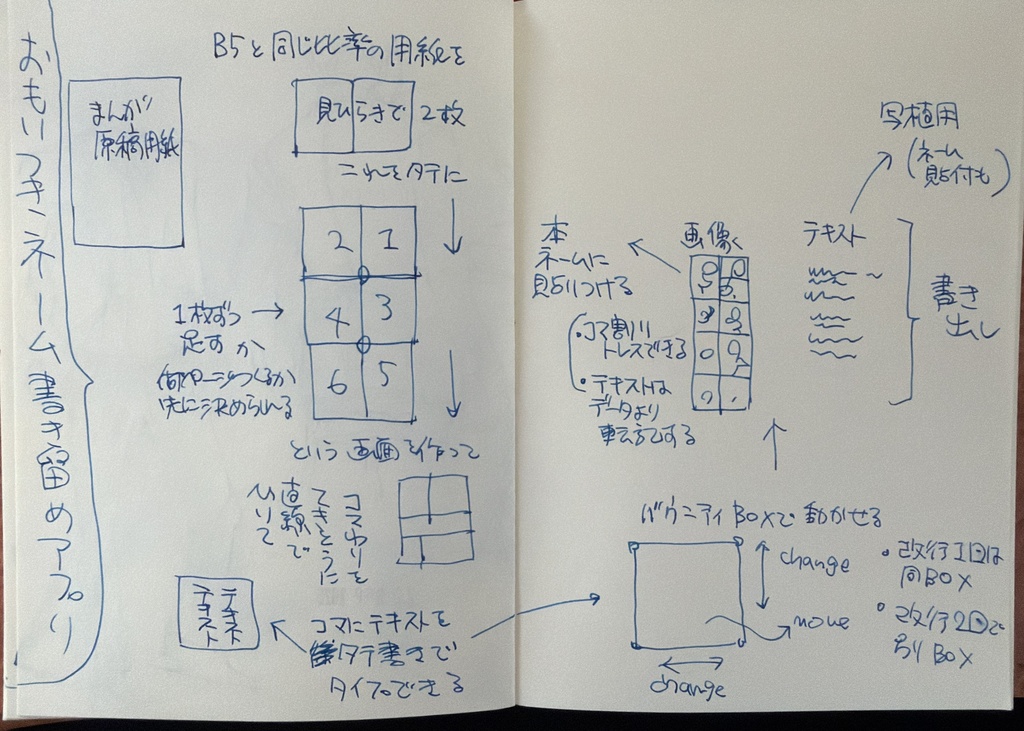 おもいつき・ネーム書き留めアプリ
B5と同じ比率の用紙を
まんが
原稿用紙
見ひらきで 2枚
これをタテに
2 1
4 3
6 5
1枚ずつ
足すか
何ページつくるか
先に決められる
という画面を作って
コマわりを
てきとうに
直線で
ひいて
テキスト
テキスト
コマにテキストを
タテ書きで
タイプできる
写植用
(ネーム
貼付も)
本
ネームに
貼りつける
画像く
テキスト
書き
出し
・コマ割り
トレスできる
・テキストは
データより
転記する
バウンディBOXで動かせる
change
move
change
・改行1回は
同BOX
・改行2回で
別BOX